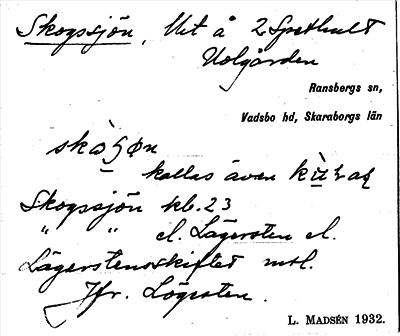 Skogssjön, Ut å 2 Spethult
Uolgården
Ransbergs sn,
Vadsbo hd, Skaraborgs län
kallas även
Skogssjön kb. 23
" " el. Lägersten el.
Lägerstensskiftet mtl.
Jfr. Lögesten.
L. MADSÉN 1932.